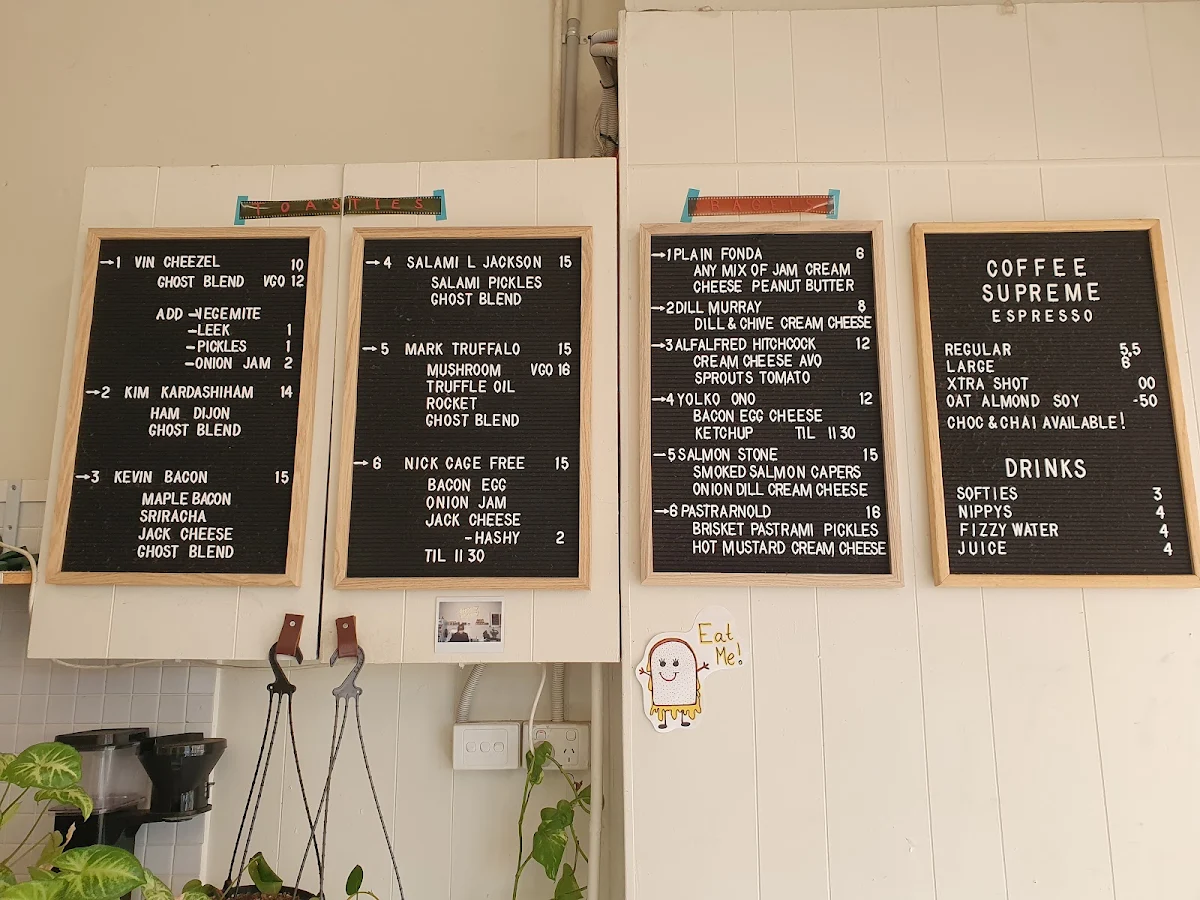 TOASTIES
→1 VIN CHEEZEL 10
GHOST BLEND VGO 12
ADD -VEGEMITE
-LEEK 1
-PICKLES 1
-ONION JAM 2
→2 KIM KARDASHIHAM 14
HAM DIJON
GHOST BLEND
→3 KEVIN BACON 15
MAPLE BACON
SRIRACHA
JACK CHEESE
GHOST BLEND
→4 SALAMI L JACKSON 15
SALAMI PICKLES
GHOST BLEND
→5 MARK TRUFFALO 15
MUSHROOM VGO 16
TRUFFLE OIL
ROCKET
GHOST BLEND
→6 NICK CAGE FREE 15
BACON EGG
ONION JAM
JACK CHEESE
-HASHY 2
TIL 11 30
BAGELS
→1 PLAIN FONDA 6
ANY MIX OF JAM CREAM
CHEESE PEANUT BUTTER
→2 DILL MURRAY 8
DILL & CHIVE CREAM CHEESE
→3 ALFALFRED HITCHCOCK 12
CREAM CHEESE AVO
SPROUTS TOMATO
→4 YOLKO ONO 12
BACON EGG CHEESE
KETCHUP TIL 11 30
→5 SALMON STONE 15
SMOKED SALMON CAPERS
ONION DILL CREAM CHEESE
→6 PASTRARNOLD 16
BRISKET PASTRAMI PICKLES
HOT MUSTARD CREAM CHEESE
COFFEE
SUPREME
ESPRESSO
REGULAR 5,5
LARGE 6
XTRA SHOT 00
OAT ALMOND SOY -50
CHOC & CHAI AVAILABLE!
DRINKS
SOFTIES 3
NIPPYS 4
FIZZY WATER 4
JUICE 4
Eat
Me!